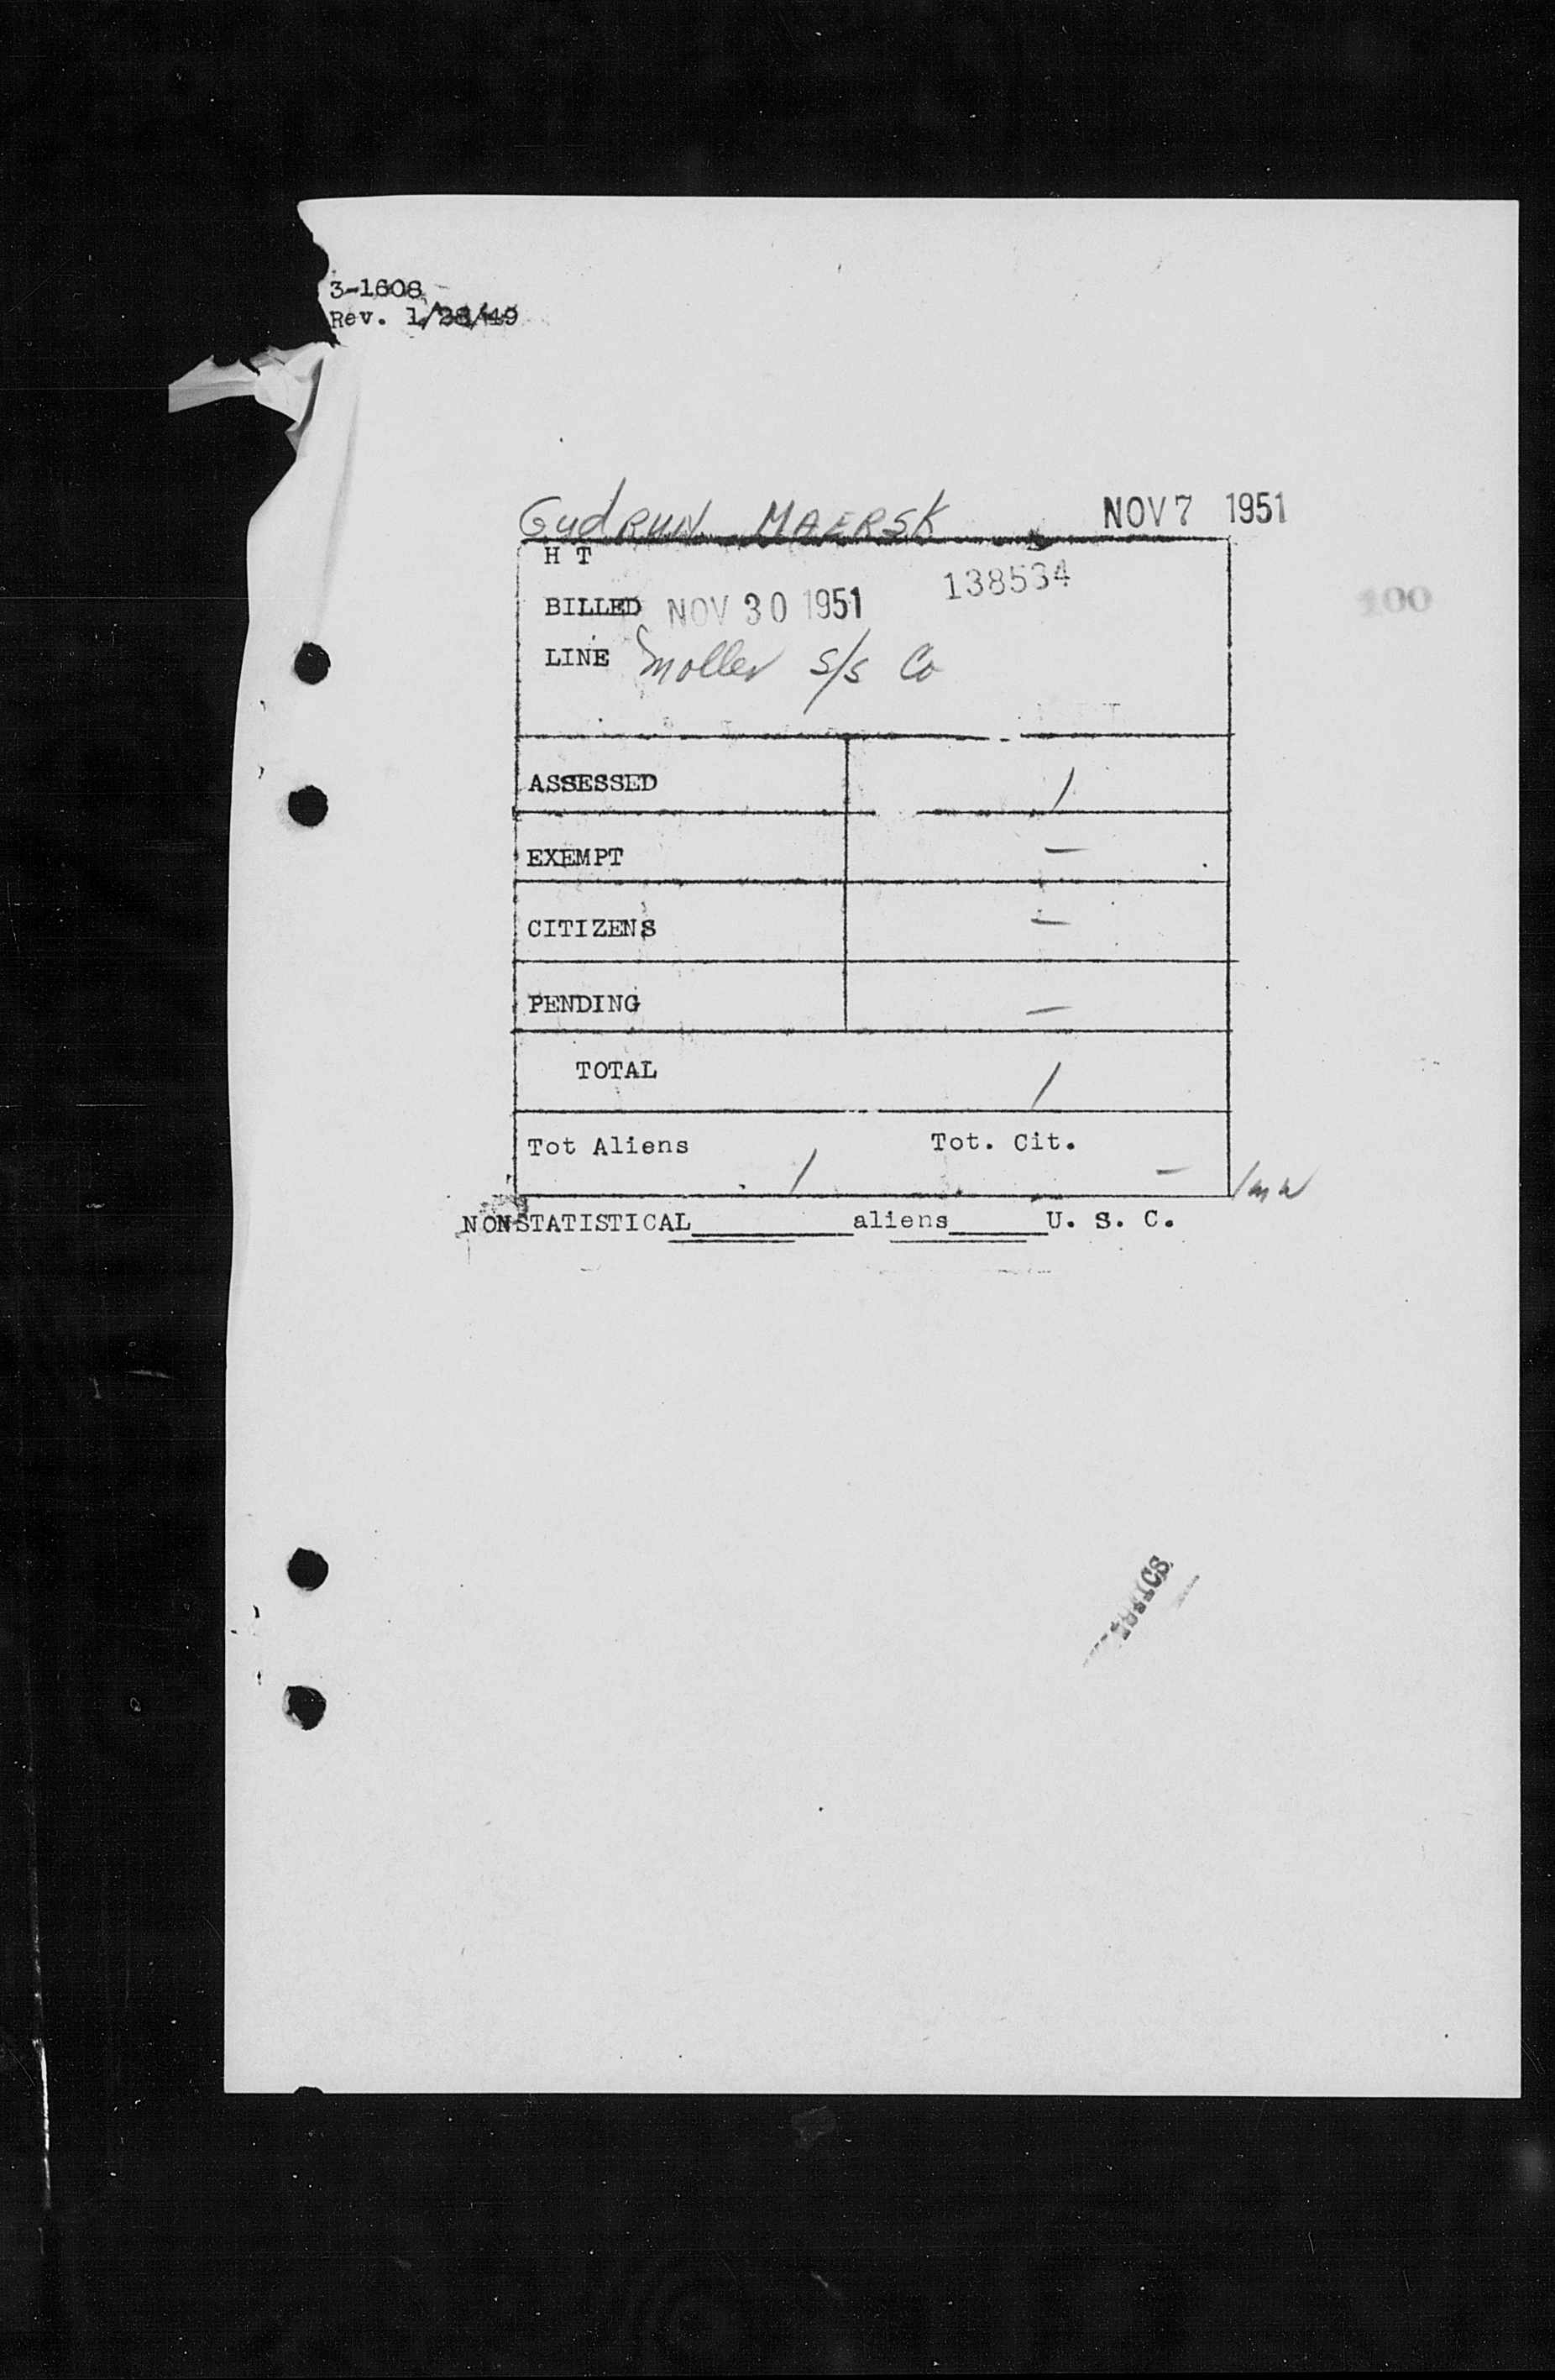 3-1608
Rev. 1/28/49
GudRUN MAERSK NOV 7 1951
H T
138534
BILLED NOV 30 1951
100
LINE Moller S/S Co
ASSESSED 1
EXEMPT —
CITIZENS —
PENDING —
TOTAL 1
Tot Aliens 1 Tot. Cit. —
NONSTATISTICAL________aliens_____U. S. C.